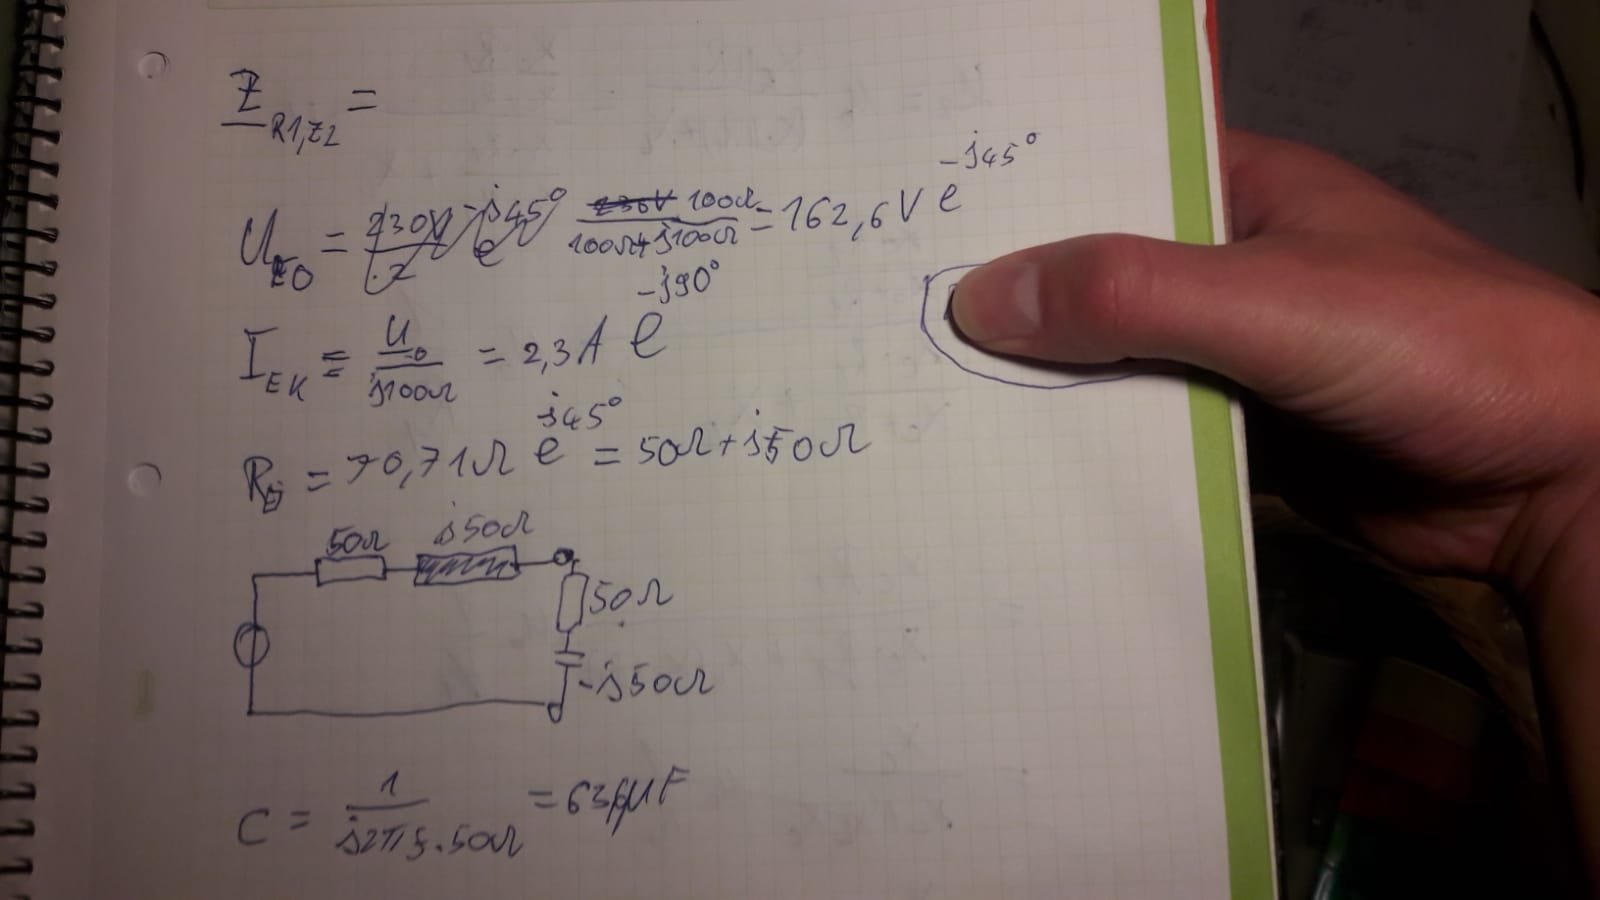 Z R1,Z2 =
U E0 = 230V/Z e -j45° 230V 100Ω / 100Ω+j100Ω = 162,6V e -j45°
I EK = U0 / j100Ω = 2,3A e -j90°
R = 70,71Ω e j45° = 50Ω + j50Ω
50Ω j50Ω
50Ω
-j50Ω
C = 1 / j2πf.50Ω = μF